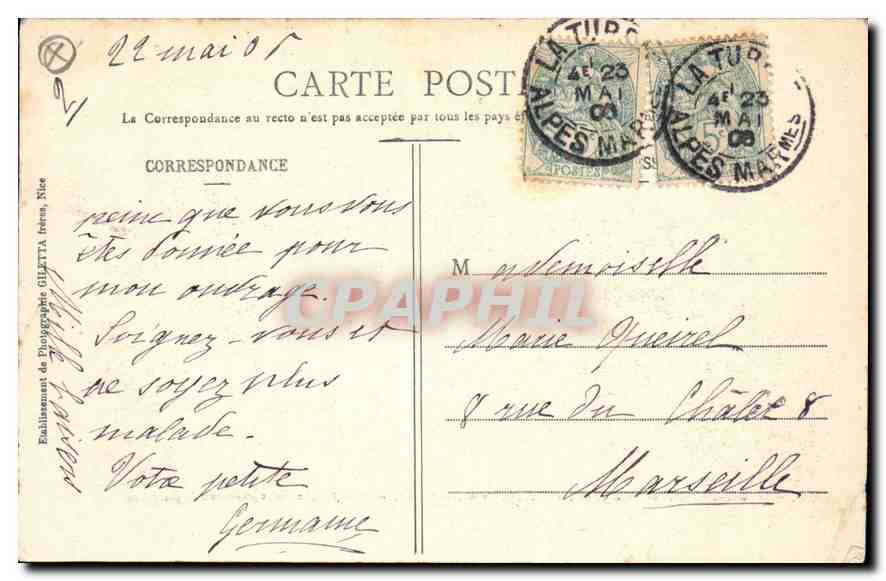 22 mai 05
2/
CARTE POST
La Correspondance au recto n'est pas acceptée par tous les pays é
CORRESPONDANCE
peine que vous vous
êtes donnée pour
mon ouvrage.
Soignez-vous et
ne soyez plus
malade.
Votre petite
Germaine
Mille baisers
Etablissement de Photographie GILETTA frères, Nice
LA TUR
4E 23
MAI
ALPES MARIT
POSTES
LA TUR
4E 23
MAI
ALPES MARMES
5c
Mademoiselle
Marie Queirel
8 rue du Châlet 8
Marseille
CPAPHIL